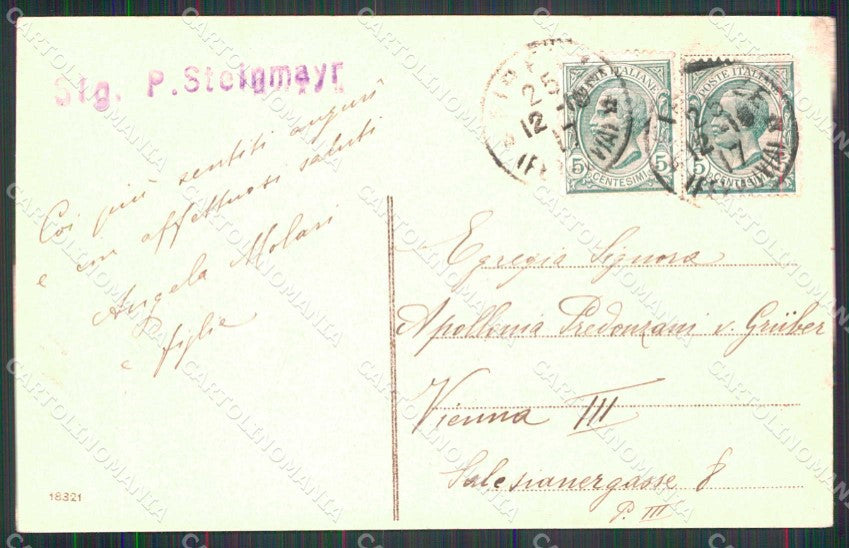 Sig. P. Steigmayr
Coi più sentiti auguri
e con affettuosi saluti
Angela Molari
e figlie
POSTE ITALIANE
5 CENTESIMI 5
POSTE ITALIANE
5 CENTESIMI
25
12
25
12
17
Egregia Signora
Apollonia Predonzani v. Grüber
Vienna III
Salesianergasse 8
P. III
18321
CARTOLINOMANIA